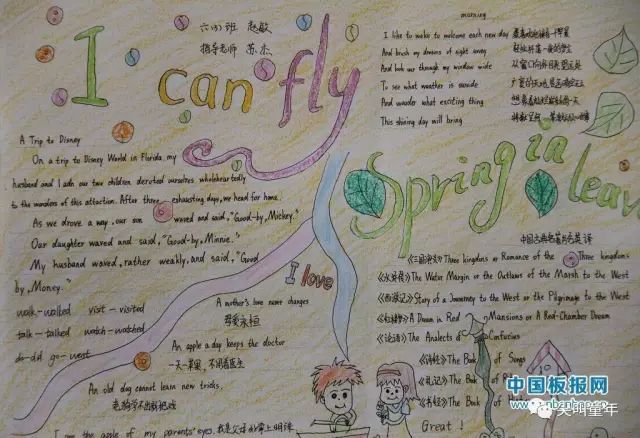 六(3)班 赵敏
指导老师 苏杰
I can fly
A Trip to Disney
On a trip to Disney World in Florida, my
husband and I and our two children devoted ourselves wholeheartedly
to the wonders of this attaction. After three exhausting days, we head for home.
As we drove a way, our son waved and said, "Good-by, Mickey."
Our daughter waved and said, "Good-by, Minnie."
My husband waved, rather weakly, and said, "Good
by, Money."
walk-walked visit-visited
talk-talked watch-watched
do-did go-went
I love
A mother's love never changes
母爱永恒
An apple a day keeps the doctor
一天一苹果,不用看医生
An old dog cannot learn new tricks.
老狗学不出新把戏
I am the apple of my parents' eyes.我是父母的掌上明珠
morning
I like to wake to welcome each new day
And brush my dreams of night away
And look out through my window wide
To see what weather is outside
And wonder what exciting thing
This shining day will bring
Spring in leav
中国古典名著书名英译
《三国演义》Three kingdoms or Romance of the Three kingdoms
《水浒传》The Water Margin or the Outlaws of the Marsh to the West
《西游记》Story of a Jounney to the West or the Pilgrimage to the West
《红楼梦》A Dream in Red Mansions or A Red-Chamber Dream
《论语》The Analects of Confucius
《诗经》The Book of Songs
《礼记》The Book of
《书经》The Book of
Great !
10
中国板报网
www.nbanbao.cn
天叫童年